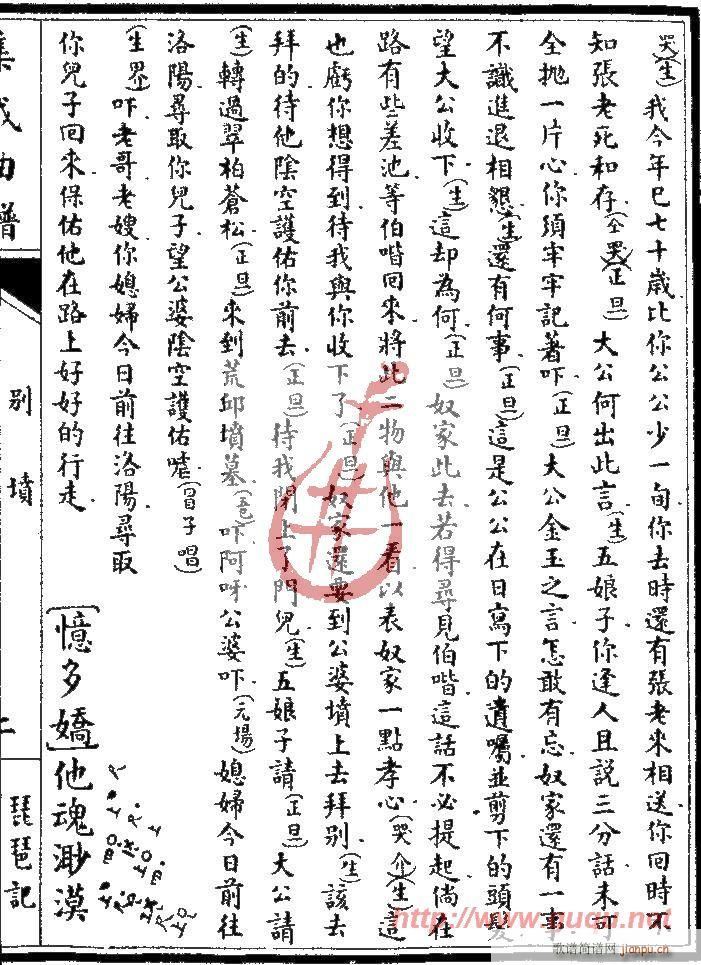 (哭)(生)我今年巳七十歲比你公公少一旬你去時還有張老來相送你回時不
知張老死和存(仝哭)(正旦)大公何出此言(生)五娘子你逢人且説三分話未可
全抛一片心你須牢牢記著吓(正旦)大公金玉之言怎敢有忘奴家還有一事
不識進退相懇(生)還有何事(正旦)這是公公在日寫下的遺囑並剪下的頭髮
望大公收下(生)這却為何(正旦)奴家此去若得尋見伯喈這話不必提起倘在
路有些差池等伯喈回來將此二物與他一看以表奴家一點孝心(哭介)(生)這
也虧你想得到待我與你收下了(正旦)奴家還要到公婆墳上去拜别(生)該去
拜的待他陰空護佑你前去(正旦)待我閉上了門兒(生)五娘子請(正旦)大公請
(生)轉過翠柏蒼松(正旦)來到荒邱墳墓吓阿呀公婆吓(元場)媳婦今日前往
洛陽尋取你兒子望公婆陰空護佑嘘(冒子唱)
(生界)吓老哥老嫂你媳婦今日前往洛陽尋取
你兒子回來保佑他在路上好好的行走
[憶多嬌]他魂渺漠
集成曲譜
别墳
二
琵琶記
http://www.yuqu.net
歌谱简谱网
jianpu.cn